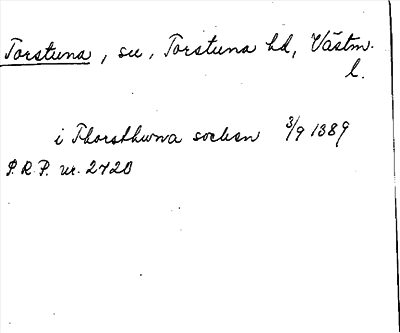 Torstuna, sn, Torstuna hd, Västm.
l.
i Thorsthuna soclsen 3/9 1389
P.R.P. nr. 2720